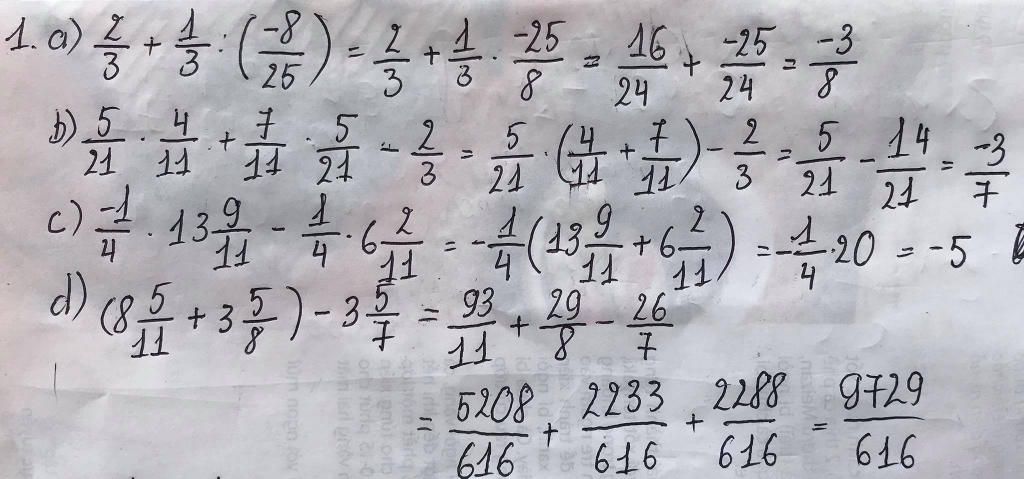 1. a) 2/3 + 1/3 : (-8/25) = 2/3 + 1/3 · -25/8 = 16/24 + -25/24 = -3/8
b) 5/21 · 4/11 + 7/11 · 5/21 - 2/3 = 5/21 · (4/11 + 7/11) - 2/3 = 5/21 - 14/21 = -3/7
c) -1/4 · 13 9/11 - 1/4 · 6 2/11 = -1/4 (13 9/11 + 6 2/11) = -1/4 · 20 = -5
d) (8 5/11 + 3 5/8) - 3 5/7 = 93/11 + 29/8 - 26/7
= 5208/616 + 2233/616 + 2288/616 = 9729/616